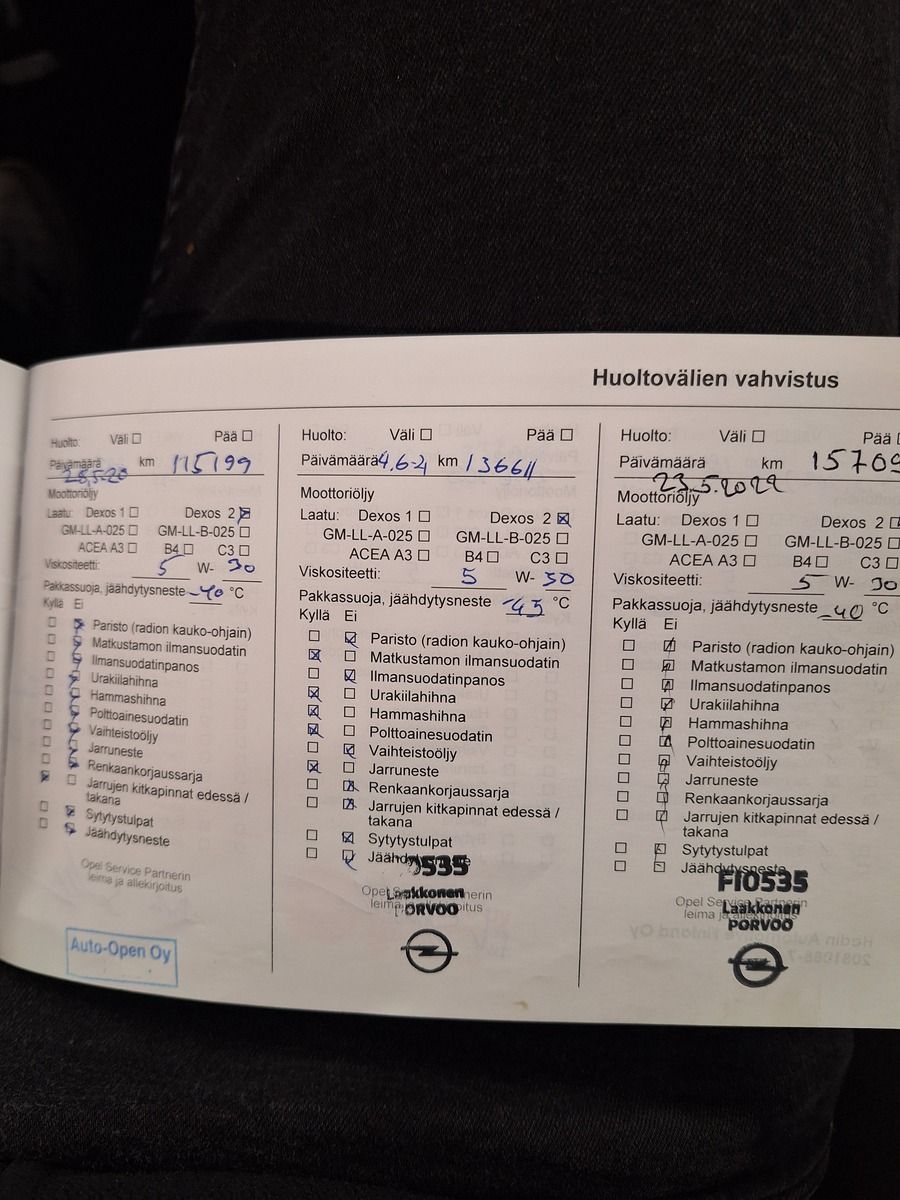 Huoltovälien vahvistus
Huolto: Väli ☐ Pää ☐
Päivämäärä km 115199
28.5.20
Moottoriöljy
Laatu: Dexos 1 ☐ Dexos 2 ☒
GM-LL-A-025 ☐ GM-LL-B-025 ☐
ACEA A3 ☐ B4 ☐ C3 ☐
Viskositeetti: 5 W- 30
Pakkassuoja, jäähdytysneste -40 °C
Kyllä Ei
☐ ☒ Paristo (radion kauko-ohjain)
☐ ☒ Matkustamon ilmansuodatin
☐ ☒ Ilmansuodatinpanos
☐ ☒ Urakiilahihna
☐ ☒ Hammashihna
☐ ☒ Polttoainesuodatin
☐ ☒ Vaihteistoöljy
☐ ☒ Jarruneste
☐ ☒ Renkaankorjaussarja
☒ ☐ Jarrujen kitkapinnat edessä /
takana
☐ ☒ Sytytystulpat
☐ ☒ Jäähdytysneste
Opel Service Partnerin
leima ja allekirjoitus
Auto-Open Oy
Huolto: Väli ☐ Pää ☐
Päivämäärä 4,6-21 km 136611
Moottoriöljy
Laatu: Dexos 1 ☐ Dexos 2 ☒
GM-LL-A-025 ☐ GM-LL-B-025 ☐
ACEA A3 ☐ B4 ☐ C3 ☐
Viskositeetti: 5 W- 30
Pakkassuoja, jäähdytysneste -45 °C
Kyllä Ei
☐ ☒ Paristo (radion kauko-ohjain)
☒ ☐ Matkustamon ilmansuodatin
☐ ☒ Ilmansuodatinpanos
☒ ☐ Urakiilahihna
☒ ☐ Hammashihna
☒ ☐ Polttoainesuodatin
☐ ☒ Vaihteistoöljy
☒ ☐ Jarruneste
☐ ☒ Renkaankorjaussarja
☐ ☒ Jarrujen kitkapinnat edessä /
takana
☐ ☒ Sytytystulpat
☐ ☒ Jäähdytysneste
0535
Opel Service Partnerin
leima ja allekirjoitus
Laakkonen
PORVOO
Huolto: Väli ☐ Pää ☐
Päivämäärä km 15709
23.5.2022
Moottoriöljy
Laatu: Dexos 1 ☐ Dexos 2 ☐
GM-LL-A-025 ☐ GM-LL-B-025 ☐
ACEA A3 ☐ B4 ☐ C3 ☐
Viskositeetti: 5 W- 30
Pakkassuoja, jäähdytysneste -40 °C
Kyllä Ei
☐ ☒ Paristo (radion kauko-ohjain)
☐ ☒ Matkustamon ilmansuodatin
☐ ☒ Ilmansuodatinpanos
☐ ☒ Urakiilahihna
☐ ☒ Hammashihna
☐ ☒ Polttoainesuodatin
☐ ☒ Vaihteistoöljy
☐ ☒ Jarruneste
☐ ☒ Renkaankorjaussarja
☐ ☒ Jarrujen kitkapinnat edessä /
takana
☐ ☒ Sytytystulpat
☐ ☐ Jäähdytysneste
FI0535
Opel Service Partnerin
leima ja allekirjoitus
Laakkonen
PORVOO